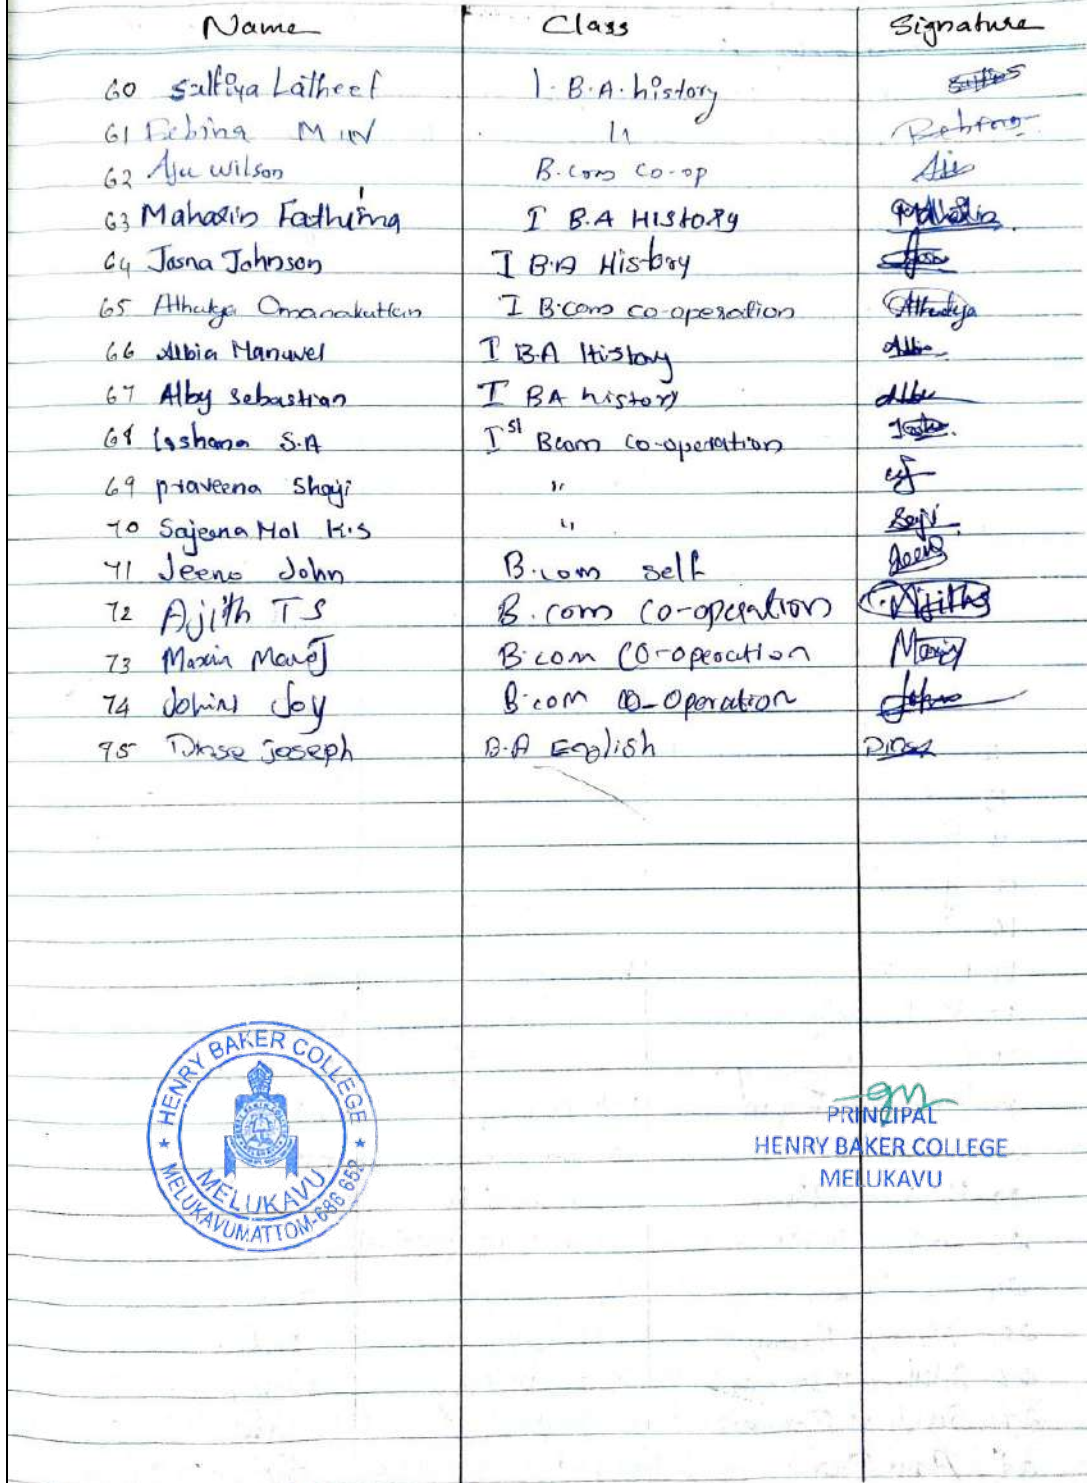 Name Class Signature
60 Salfiya Latheef I. B.A. history
61 Febina M
62 Aju Wilson B.com co-op
63 Mahasin Fathima I B.A HISTORY
64 Jasna Johnson I B.A History
65 Athulya Omanakuttan I B.com co-operation Athulya
66 Albia Manuvel I B.A History Albia
67 Alby Sebastian I BA history Alby
68 S.A Ist Bcom co-operation
69 praveena Shaji "
70 Sajeena Mol K.S "
71 Jeeno John B.com self
72 Ajith T S B.com co-operation
73 B.com CO-operation
74 Joy B.com CO-Operation
75 Joseph B.A English
HENRY BAKER COLLEGE
MELUKAVU
MELUKAVUMATTOM-686 652
PRINCIPAL
HENRY BAKER COLLEGE
MELUKAVU